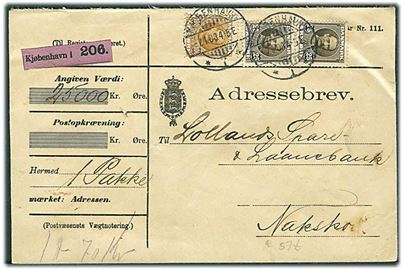 (Til Regi et.)
ar Nr. 111.
Kjøbenhavn 1 206.
KJØBENHAVN
Angiven Værdi:
25000 Kr. Øre.
Postopkrævning:
Kr. Øre.
Hermed 1 Pakke
mærket: Adressen.
(Postvæsenets Vægtnotering.)
Adressebrev.
Til Lollands Spare
& Laanebank
Nakskov